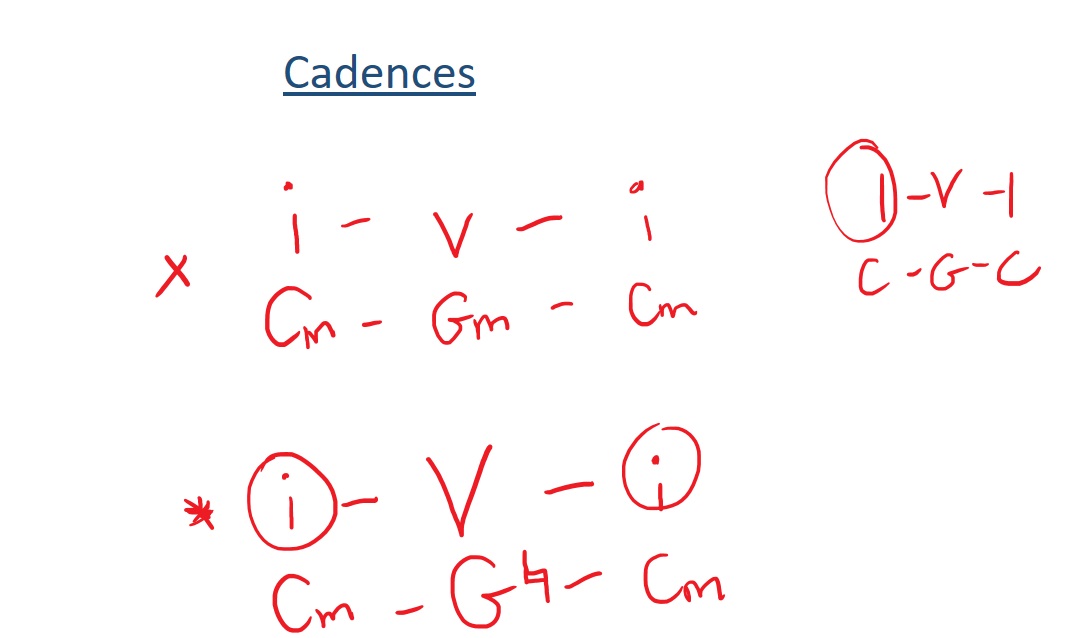 Cadences
i - v - i
I - V - I
x
Cm - Gm - Cm
C - G - C
* i - V - i
Cm - G♮ - Cm